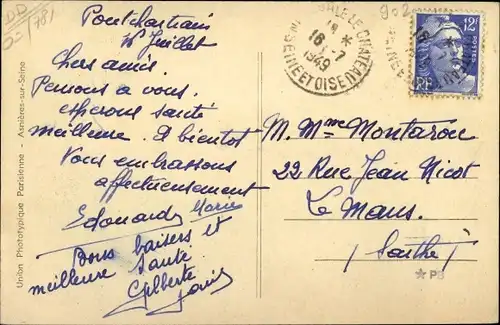 Pontchartrain
16 Juillet
Chers amis.
Pensons a vous.
esperons santé
meilleure. A bientot
Vous embrassons
affectueusement
Edouard Marie
Bons baisers et
meilleure santé
Gilberte
M. Mme Montarou
22 Rue Jean Nicot
Le Mans.
(Sarthe)
LE-CHATEAU
16 -7
1949
SEINE ET OISE
12F
RF
POSTES
Union Phototypique Parisienne - Asnières-sur-Seine
DD
781